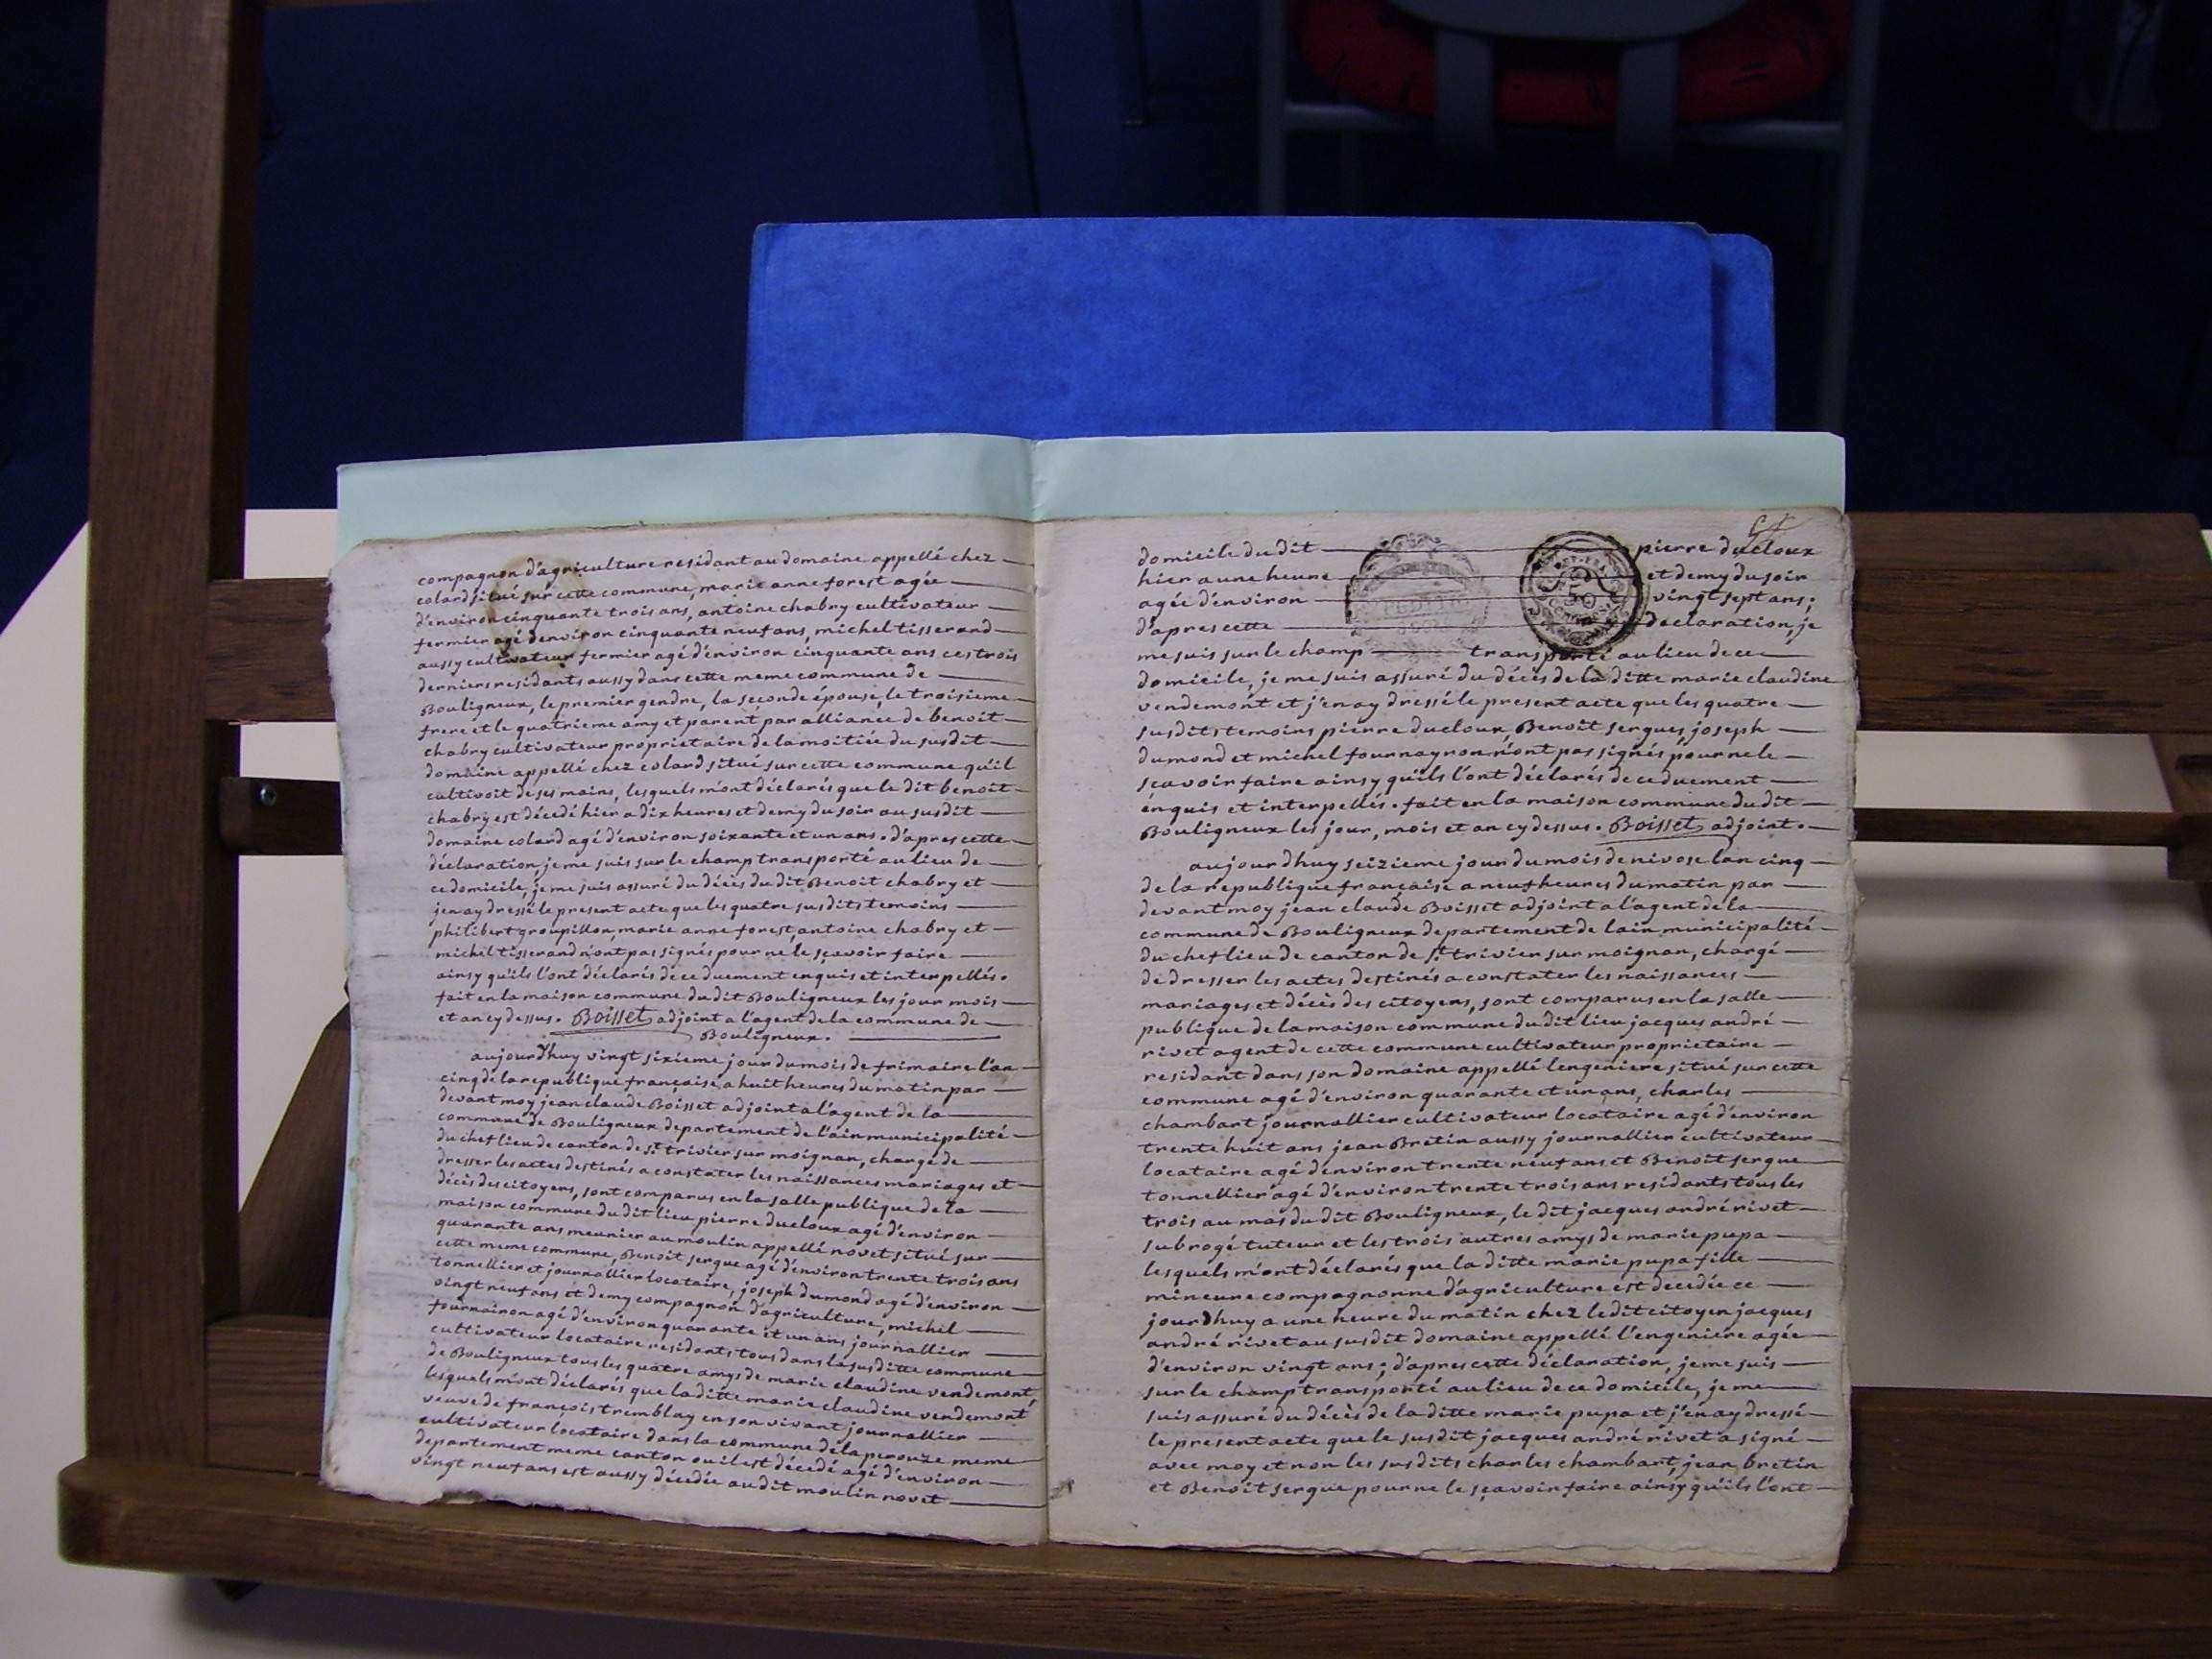 compagnon d'agriculture residant au domaine appellé chez
colard situé sur cette commune, marie anne forest agée
d'environ cinquante trois ans, antoine chabry cultivateur
fermier agé d'environ cinquante neuf ans, michel tisserand
aussy cultivateur fermier agé d'environ cinquante ans ces trois
derniers residants aussy dans cette meme commune de
Bouligneux, le premier gendre, la seconde épouse, le troisieme
frere et le quatrieme amy et parent par alliance de benoit
chabry cultivateur proprietaire de la moitiée du susdit
domaine appellé chez colard situé sur cette commune qu'il
cultivoit de ses mains, lesquels m'ont déclarés que le dit benoit
chabry est décedé hier a dix heures et demy du soir au susdit
domaine colard agé d'environ soixante et un ans. d'apres cette
déclaration, je me suis sur le champ transporté au lieu de
ce domicile, je me suis assuré du décès du dit Benoit chabry et
j'en ay dressé le present acte que les quatre susdits temoins
philibert groupillon, marie anne forest, antoine chabry et
michel tisserand n'ont pas signés pour ne le sçavoir faire
ainsy qu'ils l'ont déclarés de ce duement enquis et interpellés.
fait en la maison commune du dit Bouligneux les jour mois
et an cy dessus. Boisset adjoint a l'agent de la commune de
Bouligneux.
aujourd'huy vingt sixieme jour du mois de frimaire l'an
cinq de la republique française, a huit heures du matin par
devant moy jean claude Boisset adjoint a l'agent de la
commune de Bouligneux departement de l'ain municipalité
du chef lieu de canton de st. trivier sur moignan, chargé de
dresser les actes destinés a constater les naissances mariages et
décès des citoyens, sont comparus en la salle publique de la
maison commune du dit lieu pierre ducloux agé d'environ
quarante ans meunier au moulin appellé novet situé sur
cette meme commune, Benoit sergue agé d'environ trente trois ans
tonnellier et journallier locataire, joseph dumond agé d'environ
vingt neuf ans et demy compagnon d'agriculture, michel
fournairon agé d'environ quarante et un ans journallier
cultivateur locataire residants tous dans la susditte commune
de Bouligneux tous les quatre amys de marie claudine vendemont
lesquels m'ont déclarés que la ditte marie claudine vendemont
veuve de françois tremblay en son vivant journallier
cultivateur locataire dans la commune de laperouze meme
departement meme canton ou il est décedé agé d'environ
vingt neuf ans est aussy décedée au dit moulin novet
domicile du dit pierre ducloux
hier a une heure et demy du soir
agée d'environ vingt sept ans;
d'apres cette declaration, je
me suis sur le champ transporté au lieu de ce
domicile, je me suis assuré du décès de la ditte marie claudine
vendemont et j'en ay dressé le present acte que les quatre
susdits temoins pierre ducloux, Benoit sergues, joseph
dumond et michel fournayron n'ont pas signés pour ne le
sçavoir faire ainsy qu'ils l'ont déclarés de ce duement
énquis et interpellés. fait en la maison commune du dit
Bouligneux les jour, mois et an cy dessus. Boisset adjoint.
aujourdhuy seizieme jour du mois de nivose l'an cinq
de la republique française a neuf heures du matin par
devant moy jean claude Boisset adjoint a l'agent de la
commune de Bouligneux departement de l'ain municipalité
du chef lieu de canton de st. trivier sur moignan, chargé
de dresser les actes destinés a constater les naissances
mariages et décès des citoyens, sont comparus en la salle
publique de la maison commune du dit lieu jacques andré
rivet agent de cette commune cultivateur proprietaire
residant dans son domaine appellé lengeniere situé sur cette
commune agé d'environ quarante et un ans, charles
chambart journallier cultivateur locataire agé d'environ
trente huit ans jean Bretin aussy journallier cultivateur
locataire agé d'environ trente neuf ans et Benoit sergue
tonnellier agé d'environ trente trois ans residants tous les
trois au mas du dit Bouligneux, le dit jacques andré rivet
subrogé tuteur et les trois autres amys de marie pupa
lesquels m'ont déclarés que la ditte marie pupa fille
mineure compagnonne d'agriculture est decedée ce
jourdhuy a une heure du matin chez le dit citoyen jacques
andré rivet au susdit domaine appellé l'engeniere agée
d'environ vingt ans; d'apres cette déclaration, je me suis
sur le champ transporté au lieu de ce domicile, je me
suis assuré du décès de la ditte marie pupa et j'en ay dressé
le present acte que le susdit jacques andré rivet a signé
avec moy et non les susdits charles chambart, jean bretin
et Benoit sergue pour ne le sçavoir faire ainsy qu'ils l'ont